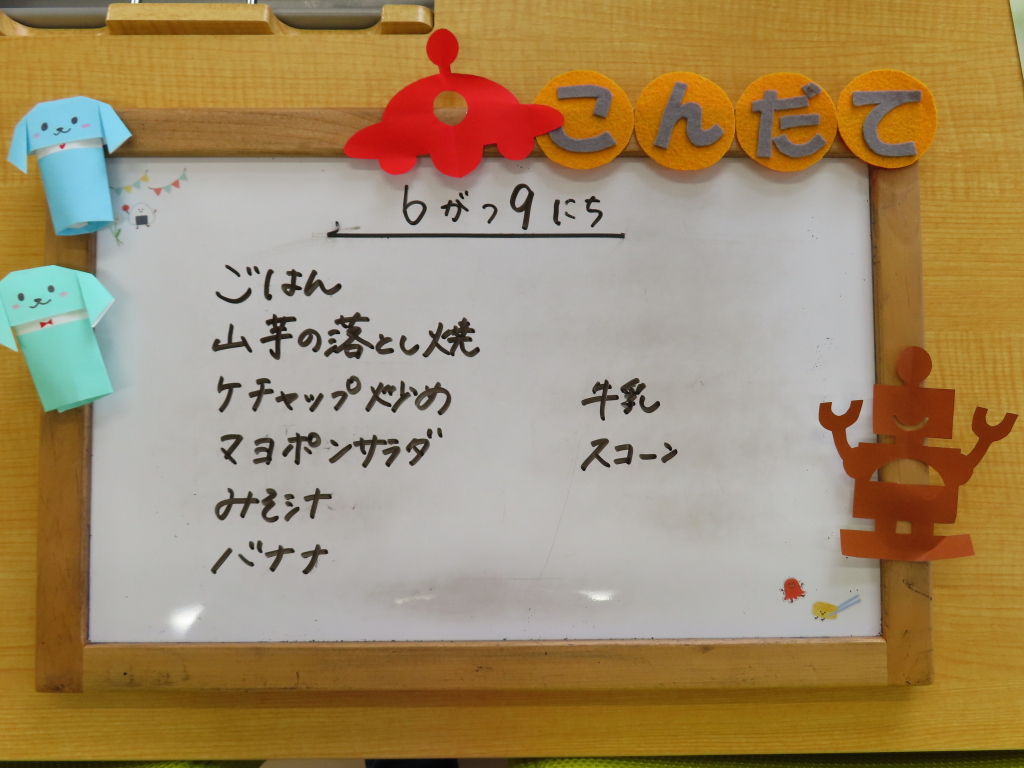 こんだて
6がつ9にち
ごはん
山芋の落とし焼
ケチャップ炒め
マヨポンサラダ
みそ汁
バナナ
牛乳
スコーン